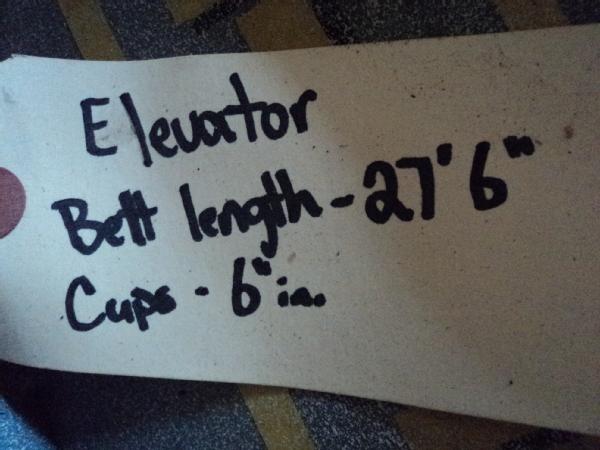 Elevator
Belt length - 27' 6"
Cups - 6" in.